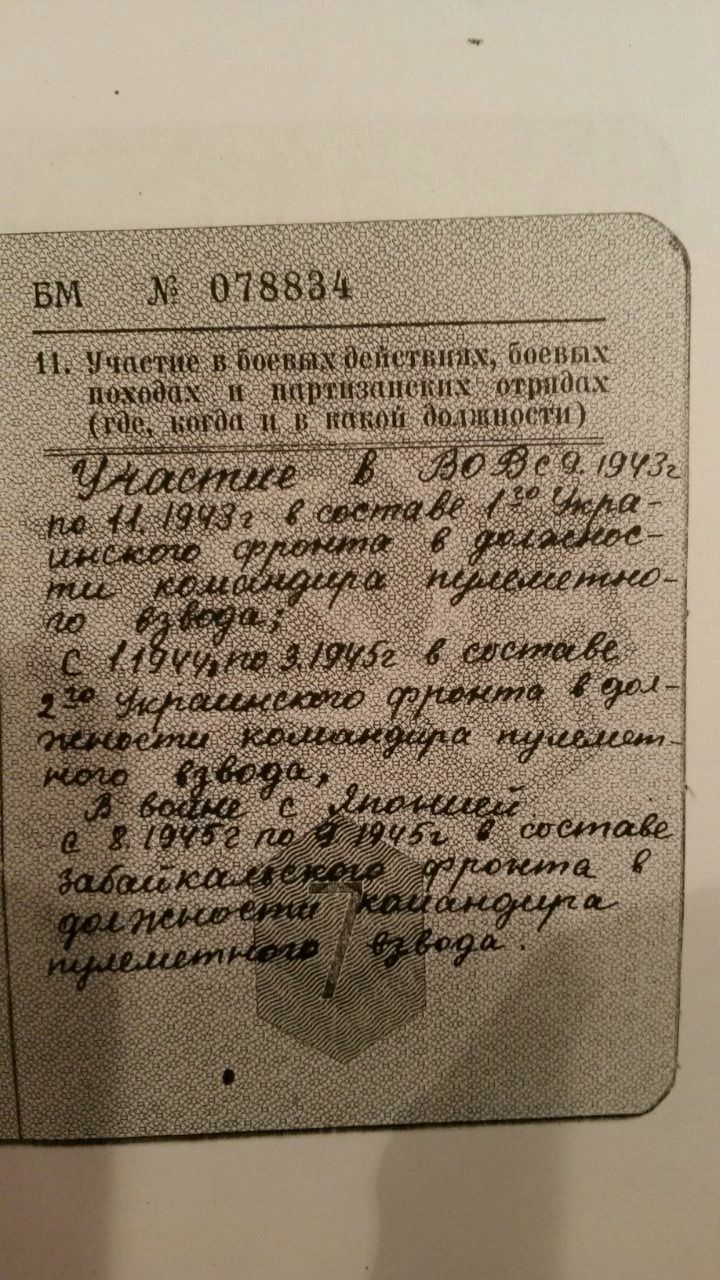 БМ № 078834
11. Участие в боевых действиях, боевых
походах и партизанских отрядах
(где, когда и в какой должности)
Участие в ВОВ с 9.1943г
по 11.1943г в составе 1го Укра-
инского фронта в должнос-
ти командира пулеметно-
го взвода;
С 1.1944г по 3.1945г в составе
2го Украинского фронта в дол-
жности командира пулемет-
ного взвода,
В войне с Японией
с 8.1945г по 9.1945г в составе
забайкальского фронта в
должности командира
пулеметного взвода.
7